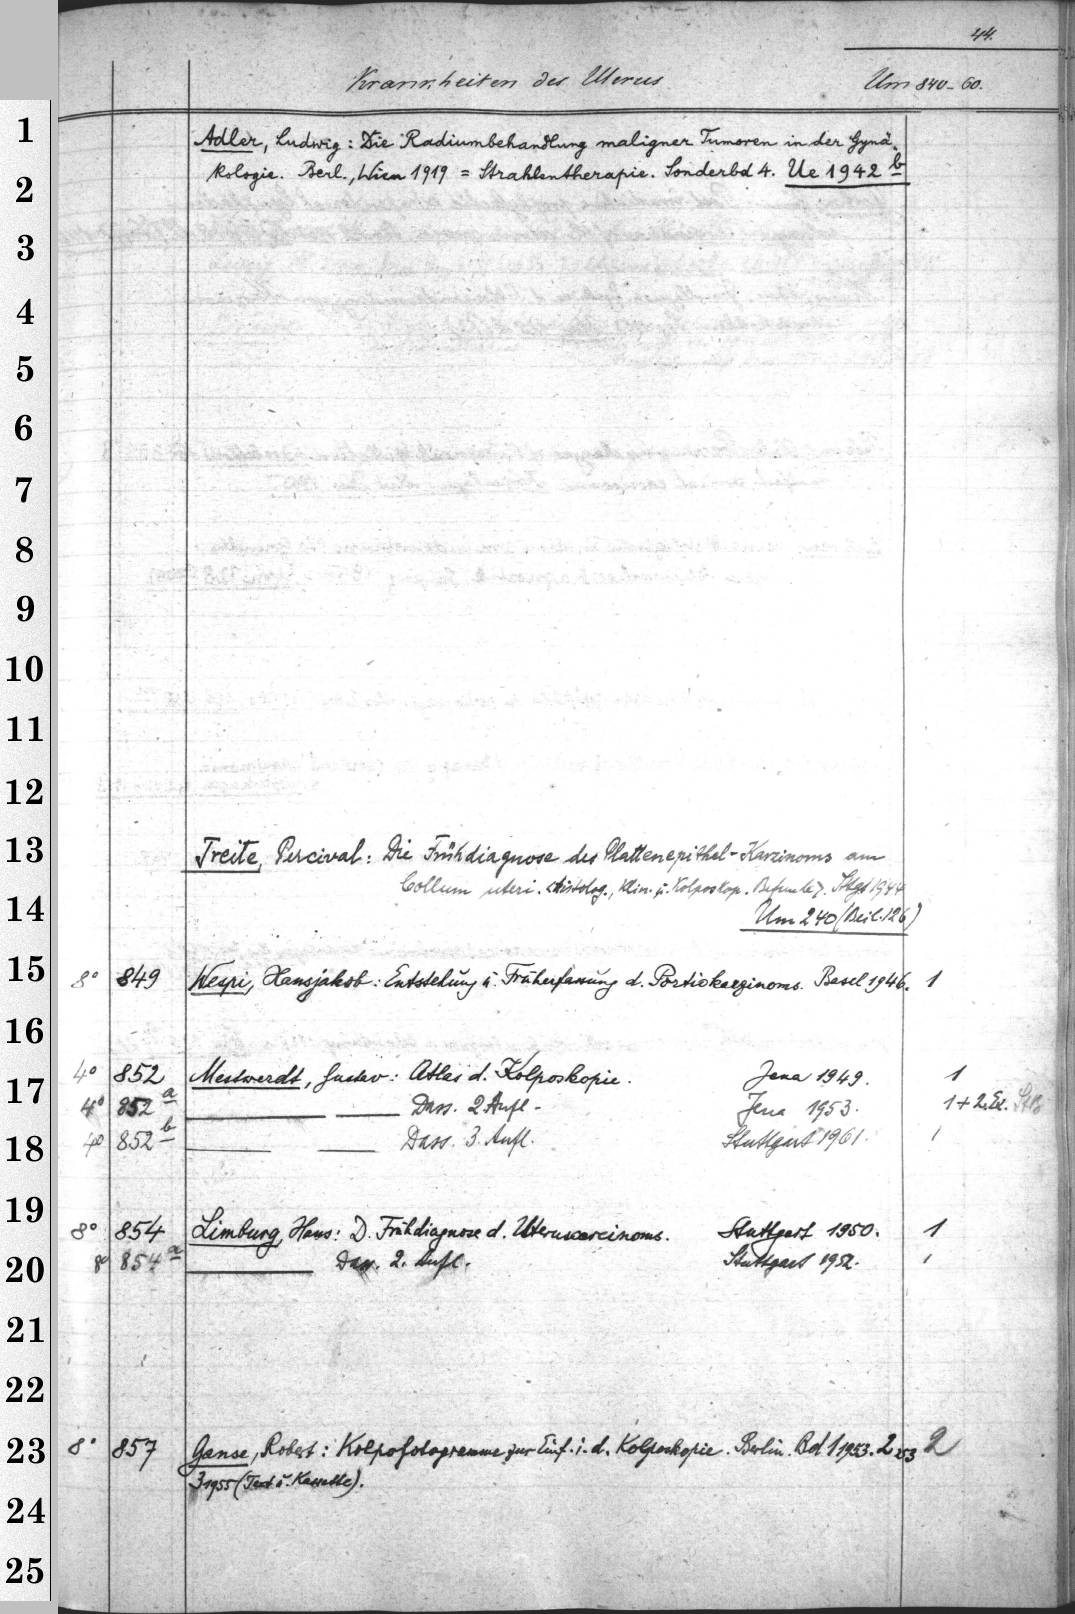 44.
Krankheiten des Uterus Um 840-60.
1
Adler, Ludwig: Die Radiumbehandlung maligner Tumoren in der Gynä-
2
kologie. Berl., Wien 1919 = Strahlentherapie. Sonderbd 4. Ue 1942 b
3
4
5
6
7
8
9
10
11
12
13
Treite, Percival: Die Frühdiagnose des Plattenepithel-Karzinoms am
Collum uteri. Histolog., klin. u. Kolposkop. Befunde. Stgt 1944
14
Um 240 (Beil. 126)
15
8° 849 Wespi, Hansjakob: Entstehung u. Früherfassung d. Portiokarzinoms. Basel 1946. 1
16
4° 852 Mestwerdt, Gustav: Atlas d. Kolposkopie. Jena 1949. 1
17
4° 852 a Dass. 2. Aufl. - Jena 1953. 1 + 2. Ex. StB
4° 852 b Dass. 3. Aufl. Stuttgart 1961. 1
18
19
8° 854 Limburg, Hans: D. Frühdiagnose d. Uteruscarcinoms. Stuttgart 1950. 1
8° 854 a Dass. 2. Aufl. Stuttgart 1952. 1
20
21
22
23
8° 857 Ganse, Robert: Kolpofotogramme zur Einf. i. d. Kolposkopie. Berlin. Bd 1 1953. 2 1953 2
3 1955 (Text u. Kassette).
24
25